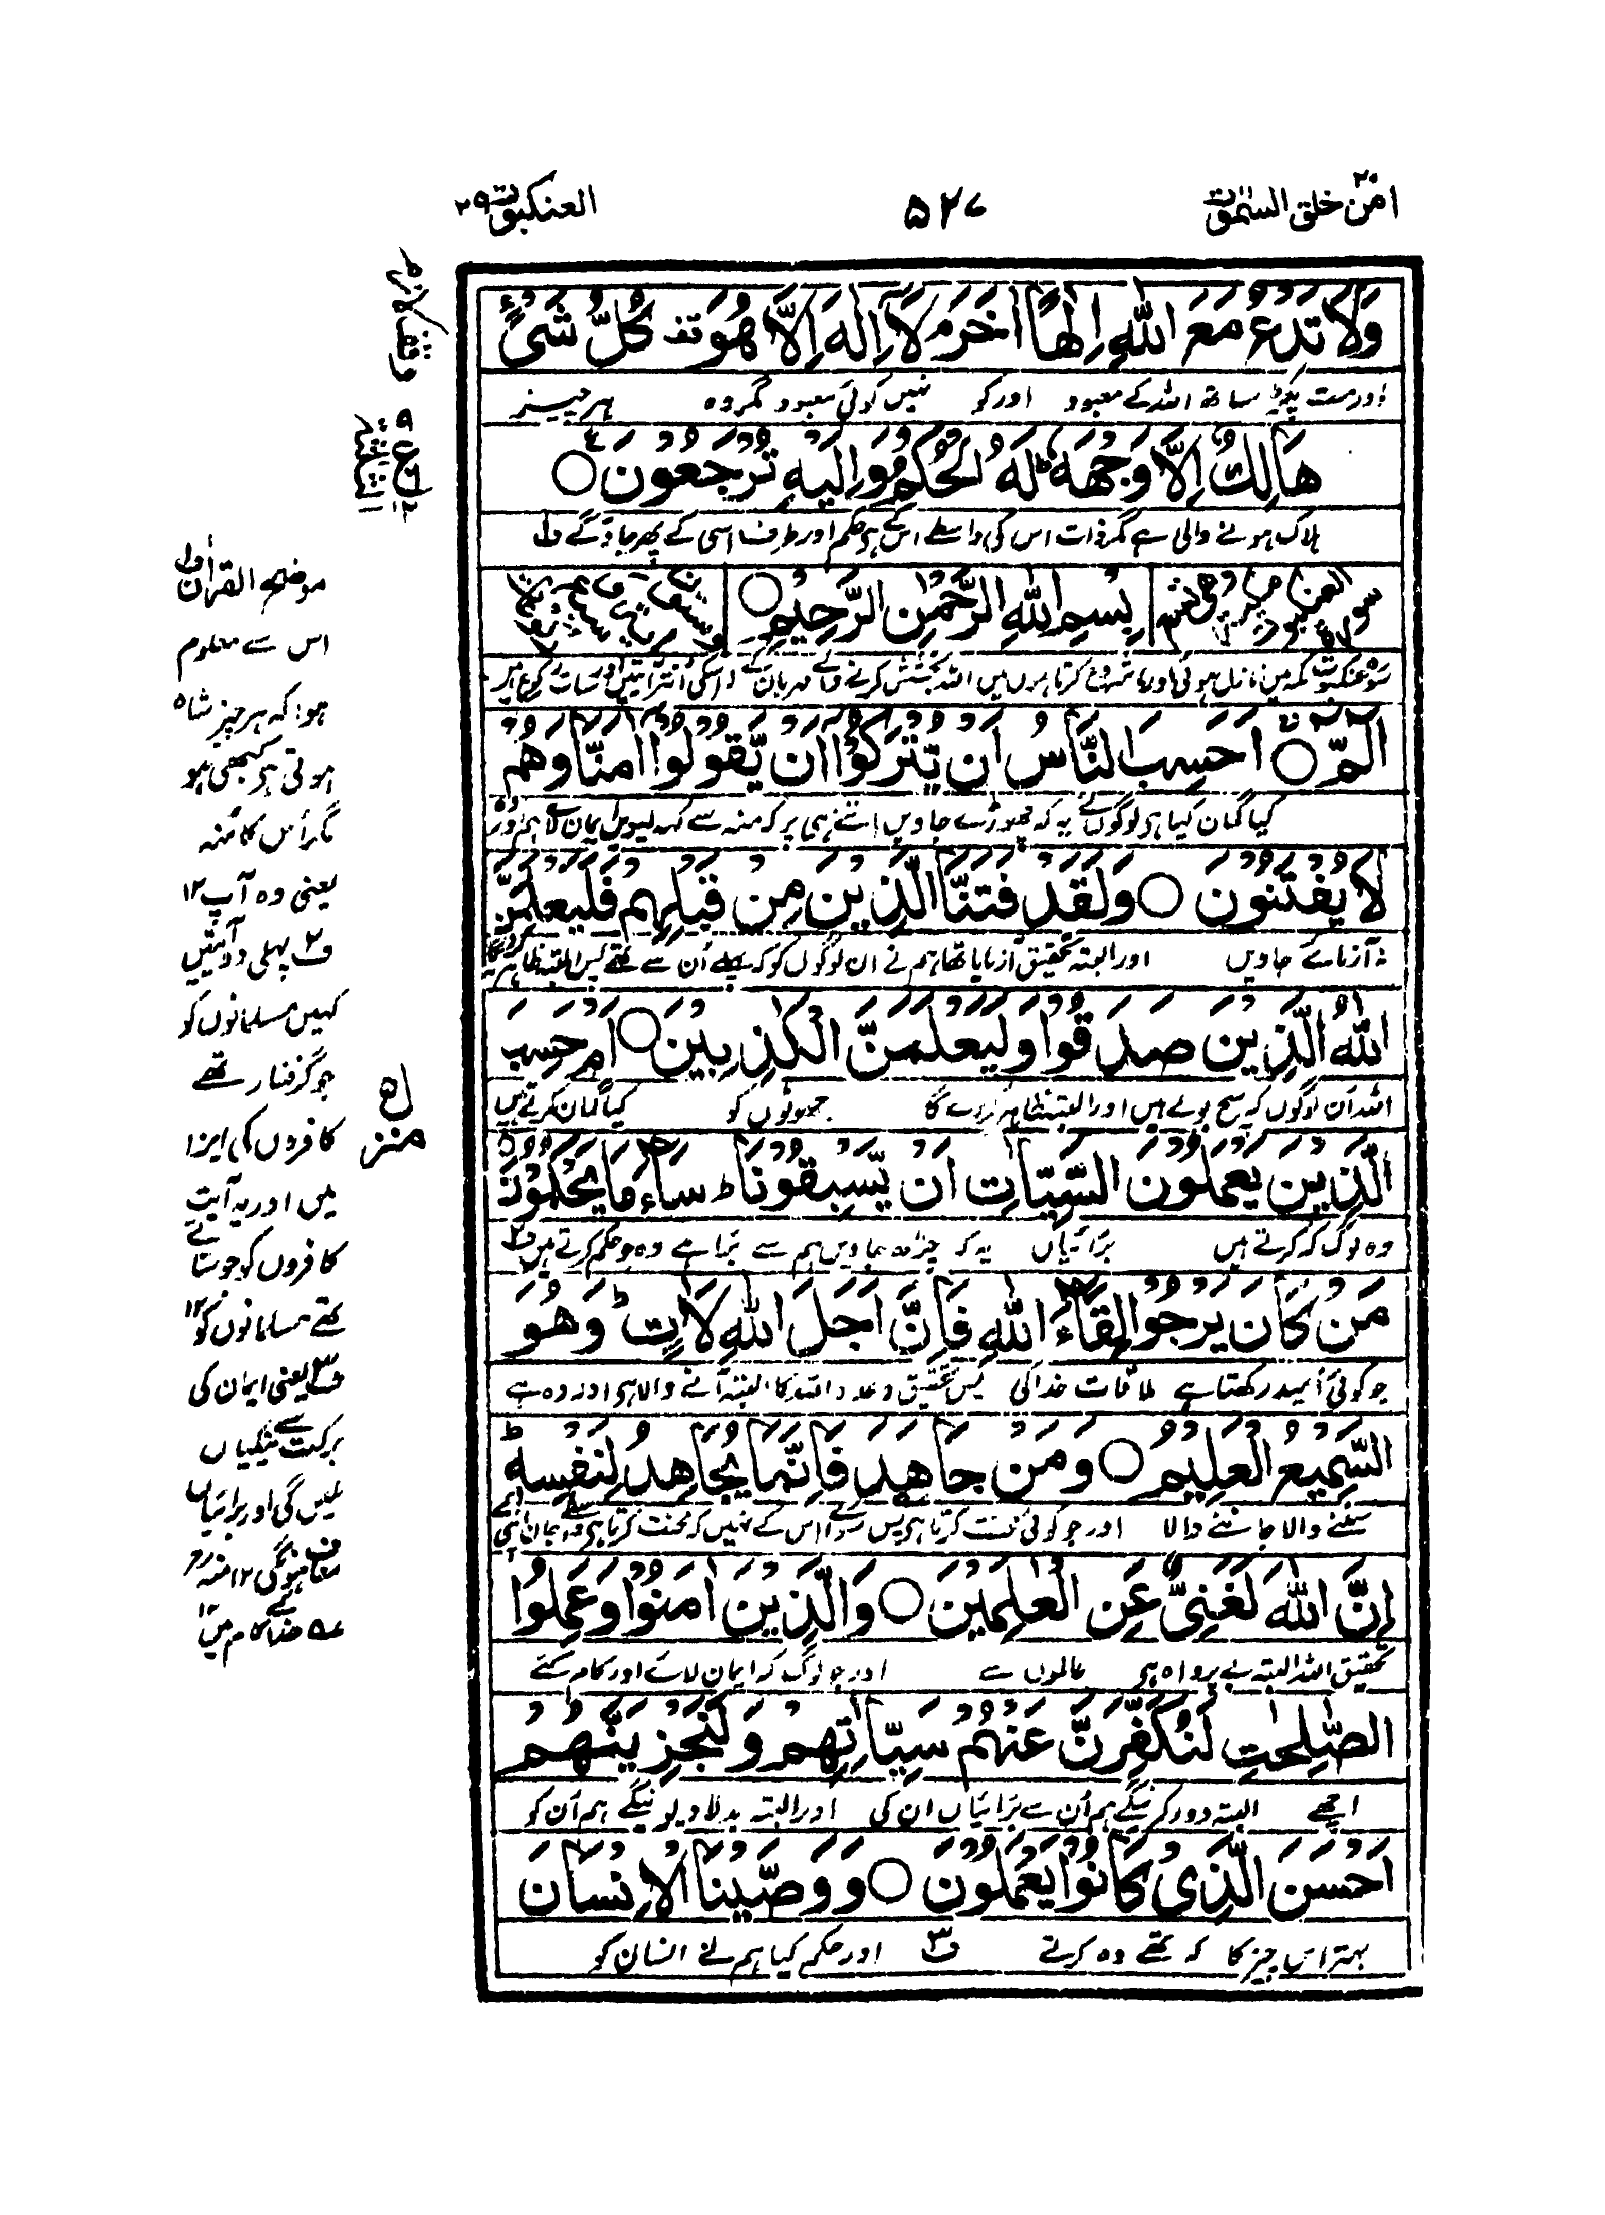 امن خلق السمٰوٰت ۲۰
۵۲۷
العنکبوت ۲۹
وَلَا تَدْعُ مَعَ اللّٰهِ اِلٰهًا اٰخَرَ م لَآ اِلٰهَ اِلَّا هُوَ قف كُلُّ شَیْءٍ
اور مت پکار ساتھ اللہ کے معبود اور کو نہیں کوئی معبود مگر وہ ہر چیز
هَالِكٌ اِلَّا وَجْهَهٗ ط لَهُ الْحُكْمُ وَ اِلَیْهِ تُرْجَعُوْنَ ○
ہلاک ہونے والی ہے مگر ذات اس کی واسطے اس کے ہے حکم اور طرف اسی کے پھر جاؤ گے ف۱
بِسْمِ اللّٰهِ الرَّحْمٰنِ الرَّحِیْمِ ○
سورہ عنکبوت مکہ میں نازل ہوئی اور شروع کرتا ہوں میں اللہ بخشش کرنے والے مہربان کے اسکی انہتر آیتیں اور سات رکوع ہیں
الٓمّٓ ○ اَحَسِبَ النَّاسُ اَنْ یُّتْرَكُوْۤا اَنْ یَّقُوْلُوْۤا اٰمَنَّا وَهُمْ
کیا گمان کیا ہے لوگوں نے یہ کہ چھوڑے جاویں اتنے ہی پر کہ منہ سے کہہ لیویں ایمان لائے ہم اور وہ
لَا یُفْتَنُوْنَ ○ وَلَقَدْ فَتَنَّا الَّذِیْنَ مِنْ قَبْلِهِمْ فَلَیَعْلَمَنَّ
نہ آزمائے جاویں اور البتہ تحقیق آزمایا تھا ہم نے ان لوگوں کو کہ پہلے اُن سے تھے پس البتہ ظاہر کر دے گا
اللّٰهُ الَّذِیْنَ صَدَقُوْا وَلَیَعْلَمَنَّ الْكٰذِبِیْنَ ○ اَمْ حَسِبَ
اللہ اُن لوگوں کو کہ سچ بولے ہیں اور البتہ ظاہر کر دے گا جھوٹوں کو کیا گمان کرتے ہیں
الَّذِیْنَ یَعْمَلُوْنَ السَّیِّاٰتِ اَنْ یَّسْبِقُوْنَا ط سَآءَ مَا یَحْكُمُوْنَ
وہ لوگ کہ کرتے ہیں برائیاں یہ کہ چڑھ جاویں ہم سے بُرا ہے وہ جو حکم کرتے ہیں ف۲
مَنْ كَانَ یَرْجُوْا لِقَآءَ اللّٰهِ فَاِنَّ اَجَلَ اللّٰهِ لَاٰتٍ ط وَهُوَ
جو کوئی اُمید رکھتا ہے ملاقات خدا کی پس تحقیق وعدہ اللہ کا البتہ آنے والا ہے اور وہ ہے
السَّمِیْعُ الْعَلِیْمُ ○ وَمَنْ جَاهَدَ فَاِنَّمَا یُجَاهِدُ لِنَفْسِهٖ ط
سننے والا جاننے والا اور جو کوئی محنت کرتا ہے پس سوائے اس کے نہیں کہ محنت کرتا ہے واسطے جان اپنی کے
اِنَّ اللّٰهَ لَغَنِیٌّ عَنِ الْعٰلَمِیْنَ ○ وَالَّذِیْنَ اٰمَنُوْا وَعَمِلُوا
تحقیق اللہ البتہ بے پرواہ ہے عالموں سے اور جو لوگ کہ ایمان لائے اور کام کئے
الصّٰلِحٰتِ لَنُكَفِّرَنَّ عَنْهُمْ سَیِّاٰتِهِمْ وَلَنَجْزِیَنَّهُمْ
اچھے البتہ دور کرینگے ہم اُن سے برائیاں ان کی اور البتہ بدلا دیوینگے ہم اُن کو
اَحْسَنَ الَّذِیْ كَانُوْا یَعْمَلُوْنَ ○ وَوَصَّیْنَا الْاِنْسَانَ
بہتر اس چیز کا کہ تھے وہ کرتے ف۳ اور حکم کیا ہم نے انسان کو
ع
۹
۱۲
منزل ۵
موضح القرآن ف۱
اس سے معلوم
ہوا کہ ہر چیز شاہ
ہوتی ہے کبھی ہو
مگر اُس کا منہ
یعنی وہ آپ ۱۲
ف۲ پہلی دو آیتیں
کہیں مسلمانوں کو
جو گرفتار تھے
کافروں کی ایذا
میں اور یہ آیت
کافروں کو جو ستاتے
تھے مسلمانوں کو ۱۲
ف۳ یعنی ایمان کی
برکت سے نیکیاں
ملیں گی اور برائیاں
معاف ہونگی ۱۲ منہ